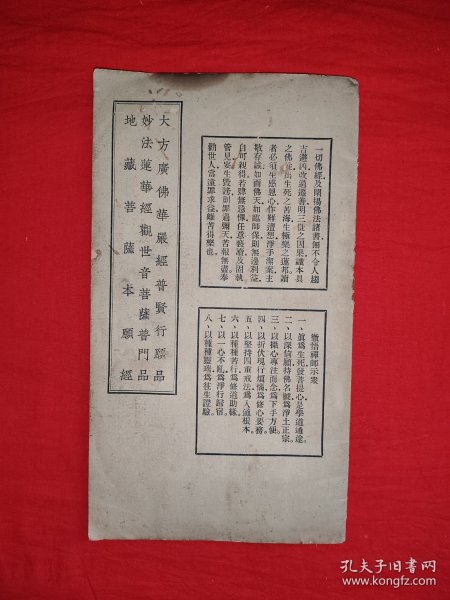 一切佛經及闡揚佛法諸書無不令人趨
吉避凶改過遷善明三世之因果識本具
之佛性出生死之苦海生極樂之蓮邦讀
者必須生感恩心作難遭想淨手潔案主
敬存誠如面佛天如臨師保則無邊利益
自可親得若肆無忌憚任意褻瀆及固執
管見妄生毀謗則罪過彌天苦報無盡奉
勸世人當遠罪求益離苦得樂也
徹悟禪師示衆
一、眞爲生死發菩提心是學道通途。
二、以深信願持佛名號爲淨土正宗。
三、以攝心專注而念爲下手方便。
四、以折伏現行煩惱爲修心要務。
五、以堅持四重戒法爲入道根本。
六、以種種苦行爲修道助緣。
七、以一心不亂爲淨行歸宿。
八、以種種靈瑞爲往生證驗。
大方廣佛華嚴經普賢行願品
妙法蓮華經觀世音菩薩普門品
地藏菩薩本願經
孔夫子旧书网
www.kongfz.com